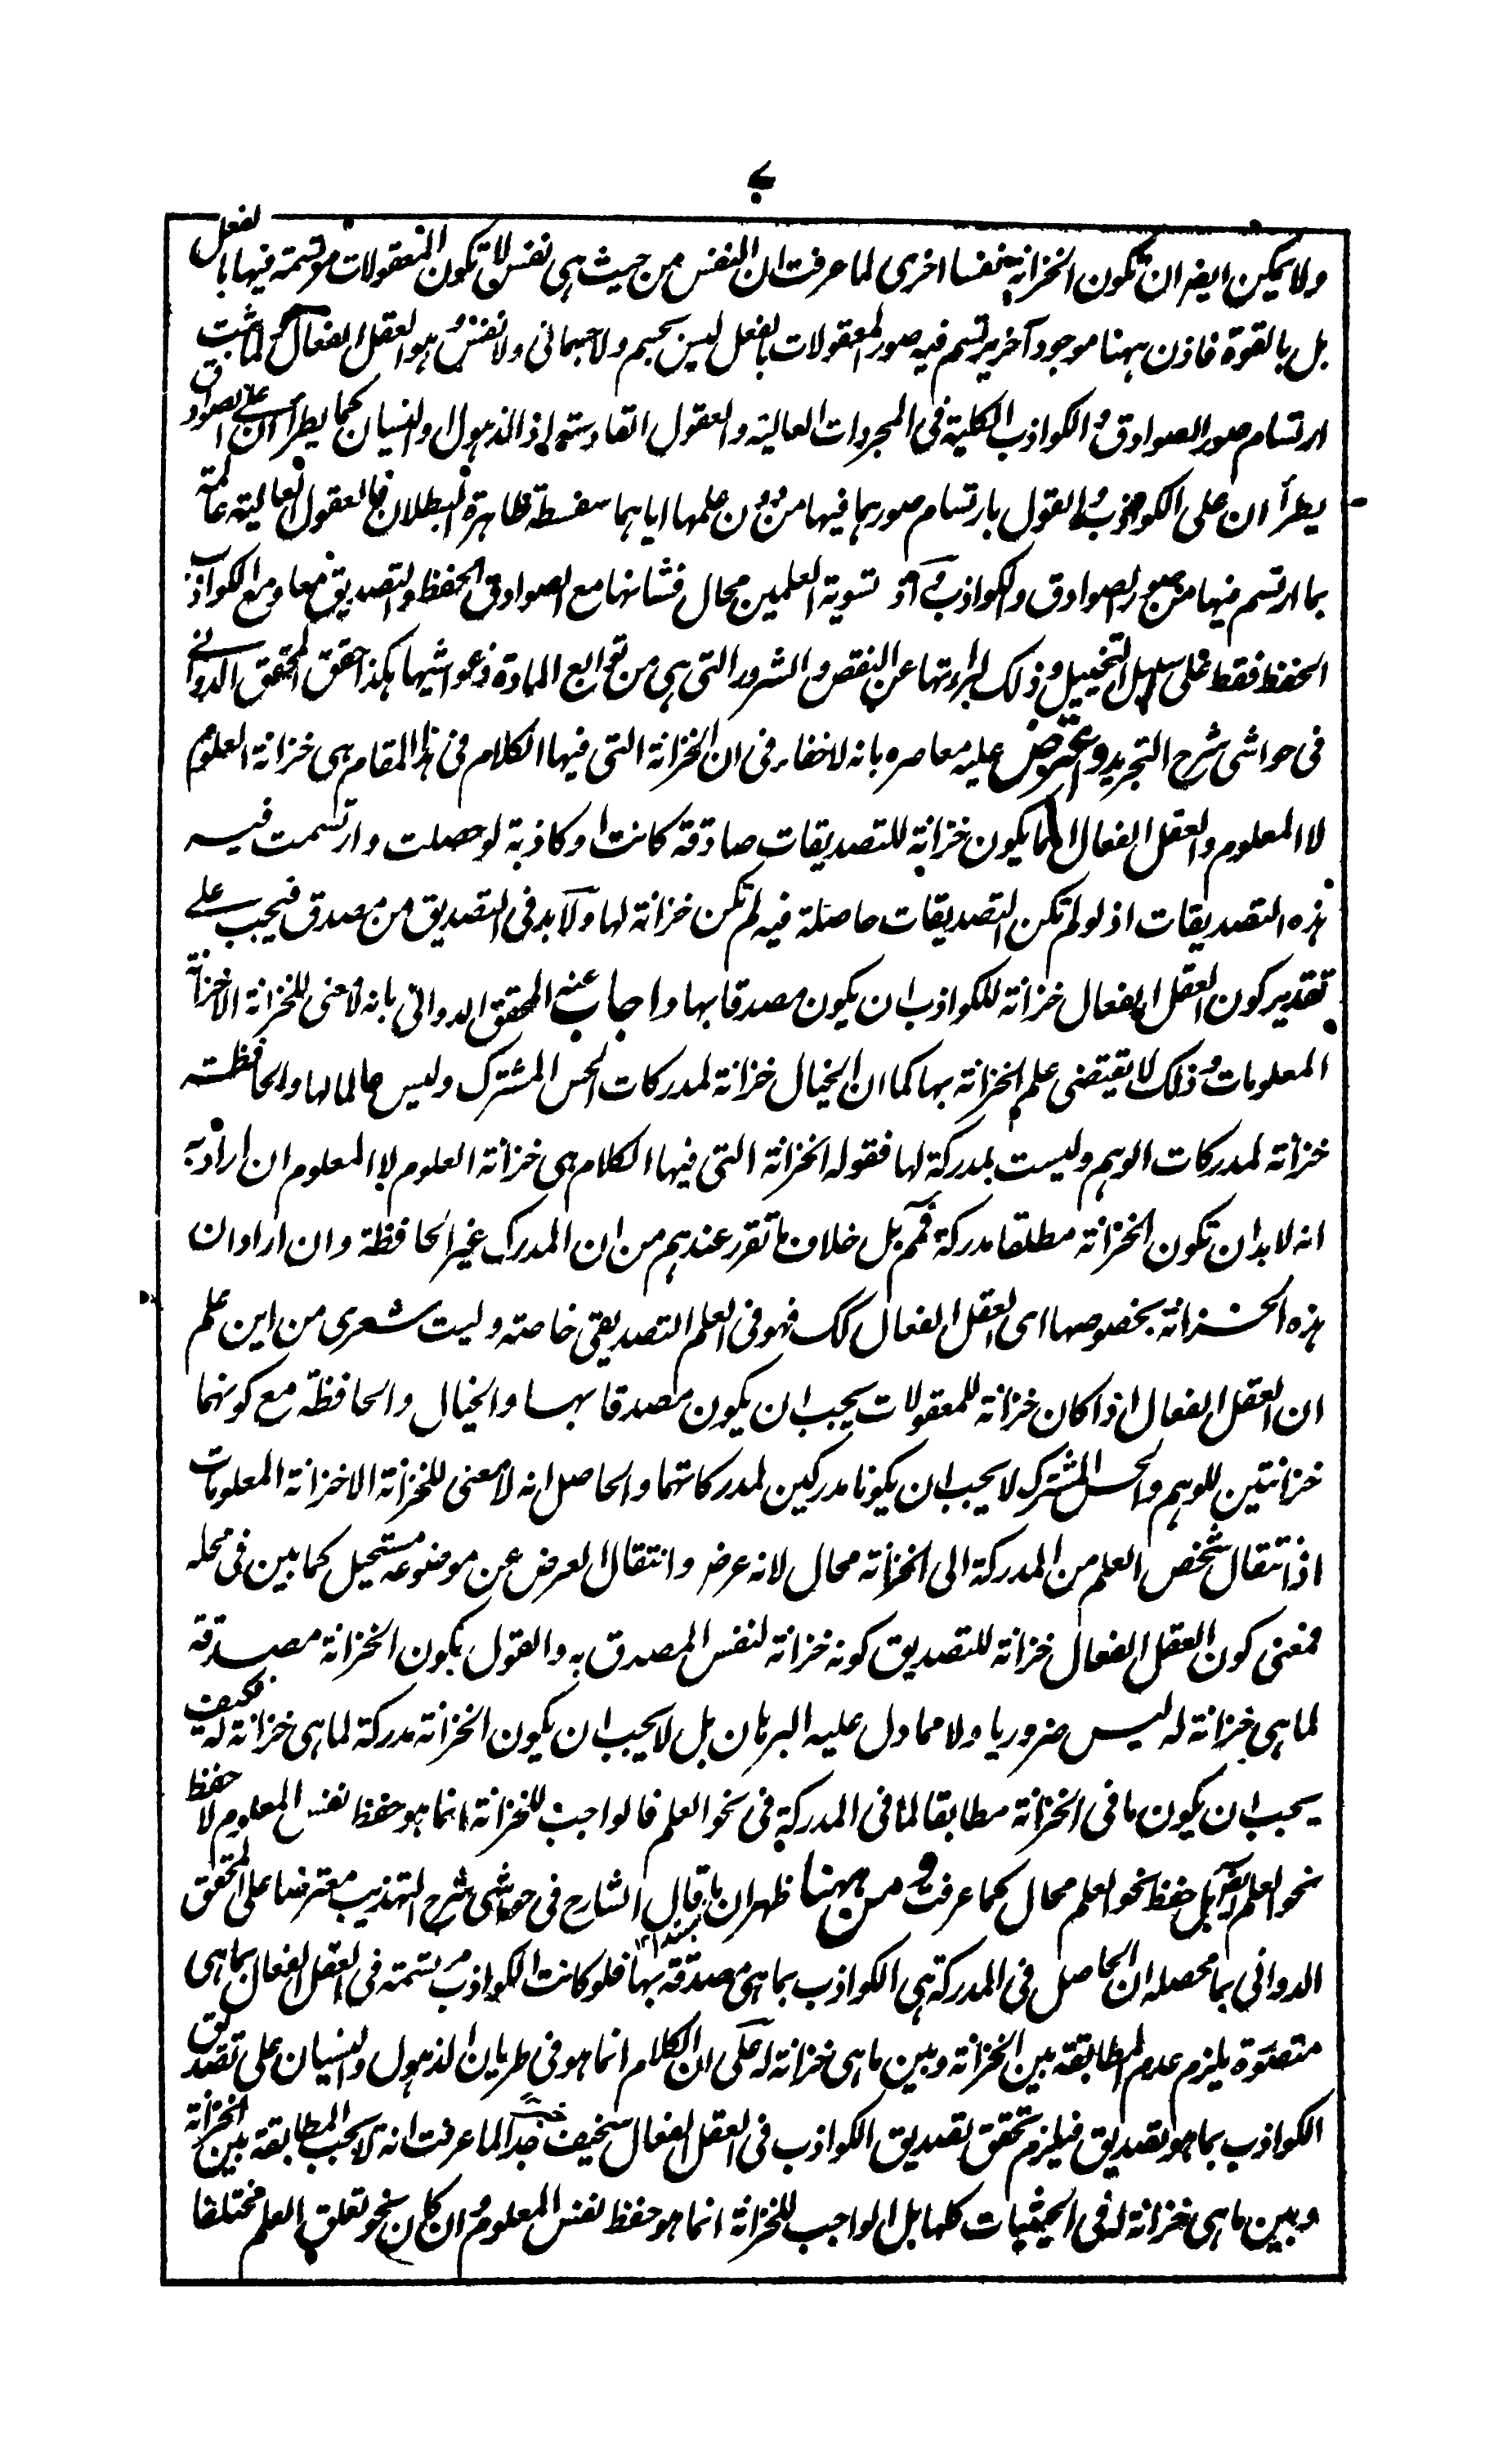 ولا يمكن ايضا ان تكون الخزانة نفسا اخرى لما عرفت ان النفس من حيث هى نفس لا تكون المعقولات مرتسمة فيها بالفعل
بل بالقوة فاذن ههنا موجود آخر يرتسم فيه صور المعقولات بالفعل ليس بجسم ولا جسمانى ولا نفس وهو العقل الفعال لما ثبت
ارتسام صور الصوادق والكواذب الكلية فى المجردات العالية والعقول القادسة اذ الذهول والنسيان كما يطرأان على الصوادق
يطرأان على الكواذب والقول بارتسام صورهما فيها من دون علمها اياهما سفسطة ظاهرة البطلان فالعقول العالية عالمة
بما ارتسم فيها من صور الصوادق والكواذب تسوية العلمين محال فشانها مع الصوادق الحفظ والتصديق معا ومع الكواذب
الحفظ فقط على سبيل التخييل وذلك لبراءتها عن النقص والشرور التى هى من توابع المادة وغواشيها هكذا حقق المحقق الدوانى
فى حواشى شرح التجريد واعترض عليه معاصره بانه لا خفاء فى ان الخزانة التى فيها الكلام فى هذا المقام هى خزانة العلوم
لا المعلوم والعقل الفعال انما يكون خزانة للتصديقات صادقة كانت او كاذبة لو حصلت وارتسمت فيه
هذه التصديقات اذ لو لم تكن التصديقات حاصلة فيه لم تكن خزانة لها ولا بد فى التصديق من مصدق فيجب على
تقدير كون العقل الفعال خزانة للكواذب ان يكون مصدقا بها واجاب عنه المحقق الدوانى بانه لا معنى للخزانة الا خزانة
المعلومات وذلك لا يقتضى علم الخزانة بها كما ان الخيال خزانة لمدركات الحس المشترك وليس عالما لها والحافظة
خزانة لمدركات الوهم وليست بمدركة لها فقوله الخزانة التى فيها الكلام هى خزانة العلوم لا المعلوم ان اراد به
انه لا بد ان تكون الخزانة مطلقا مدركة فمم بل خلاف ما تقرر عندهم من ان المدرك غير الحافظة وان اراد ان
هذه الخزانة بخصوصها اى العقل الفعال كك فهو فى العلم التصديقى خاصة وليت شعرى من اين علم
ان العقل الفعال اذا كان خزانة للمعقولات يجب ان يكون مصدقا بها والخيال والحافظة مع كونهما
خزانتين للوهم والحس المشترك لا يجب ان يكونا مدركين لمدركاتهما والحاصل انه لا معنى للخزانة الا خزانة المعلومات
اذ انتقال شخص العلم من المدركة الى الخزانة محال لانه عرض وانتقال العرض عن موضوعه مستحيل كما بين فى محله
فمعنى كون العقل الفعال خزانة للتصديق كونه خزانة لنفس المصدق به والقول بكون الخزانة مصدقة
لما هى خزانة له ليس ضروريا ولا مما دل عليه البرهان بل لا يجب ان يكون الخزانة مدركة لما هى خزانة له فكيف
يجب ان يكون ما فى الخزانة مطابقا لما فى المدركة فى نحو العلم فالواجب للخزانة انما هو حفظ نفس المعلوم لا حفظ
نحو العلم ايضا بل حفظ نحو العلم محال كما عرفت ومن ههنا ظهر ان ما قال الشارح فى حواشى شرح التهذيب معترضا على المحقق
الدوانى بما محصله ان الحاصل فى المدركة هى الكواذب بما هى مصدقة بها فلو كانت الكواذب مرتسمة فى العقل الفعال بما هى
متصورة يلزم عدم المطابقة بين الخزانة وبين ما هى خزانة له على ان الكلام انما هو فى طريان الذهول والنسيان على تصديق
الكواذب بما هو تصديق فيلزم تحقق تصديق الكواذب فى العقل الفعال سخيف جدا لما عرفت انه لا يجب المطابقة بين الخزانة
وبين ما هى خزانة له فى الحيثيات كلها بل الواجب للخزانة انما هو حفظ نفس المعلوم وان كان نحو تعلق العلم مختلفا